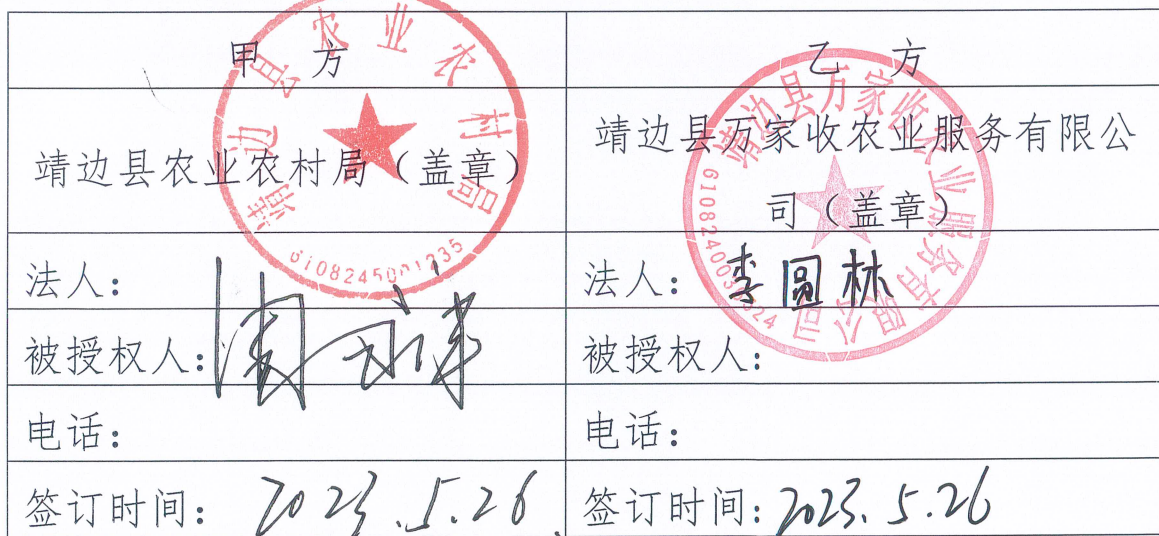 甲 方
乙 方
靖边县农业农村局（盖章）
靖边县万家收农业服务有限公
司（盖章）
法人：
法人：李圆林
被授权人：
被授权人：
电话：
电话：
签订时间：2023.5.26
签订时间：2023.5.26
靖边县农业农村局
6108245001235
靖边县万家收农业服务有限公司